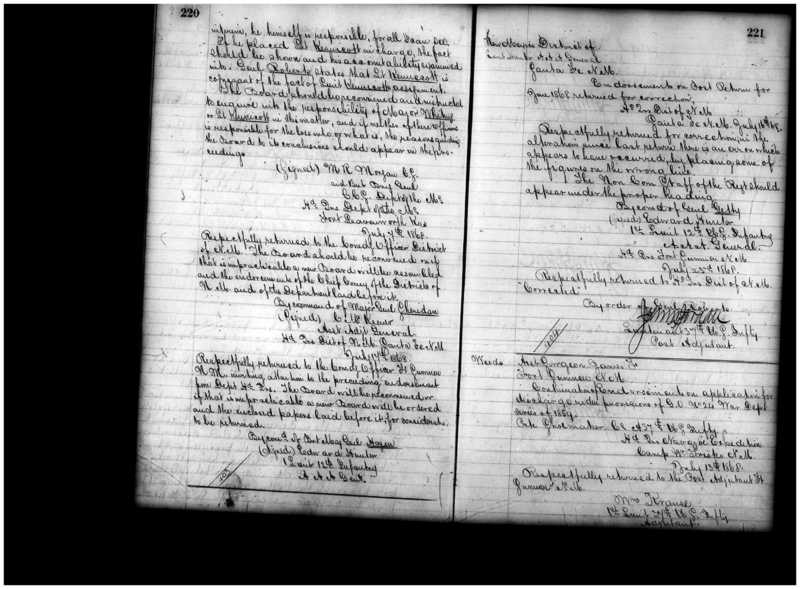 220
inquire, he himself is responsible, for all
If he placed Lt Kennicott in charge, the fact
should be shown and his accountability examined
into. Genl Roberts states that Lt Kennicott is
cognizant of the fact of Lieut Kennicotts assignment.
The Board should be reconvened and instructed
to enquire into the responsibility of Major Whiting
or Lt Kennicott in this matter, and if neither of these officers
is responsible for the loss who or what is, the reasons guiding
the Board to its conclusions should appear in the pro-
ceedings
(signed) M R Morgan CS
and Bvt Brig Genl
C.C.S. Dept of the Mo.
Hd Qrs Dept of the Mo.
Fort Leavenworth Kas
July 7th 1868.
Respectfully returned to the Comdg Officer District
of N.M. The Board should be reconvened or if
that is impracticable a new Board will be assembled
and the endorsements of the Chief Comsy of the Districts of
N. Mex and of the Department laid before it.
By command of Major Genl Sheridan
(Signed)
Asst Adjt General
Hd Qrs Dist of N.M. Santa Fe N.M.
July 1868
Respectfully returned to the Comdg Officer Ft Sumner
N.M. inviting attention to the preceding endorsement
from Dept Hd Qrs. The Board will be reconvened, or
if that is impracticable a new Board will be ordered
and the enclosed papers laid before it, for consideration
to be returned.
By com of Bvt Maj Genl Getty
(signed) Edward Hunter
1 Lieut 12th Infantry
A A A Genl.
221
New Mexico District of
General
Santa Fe N.M.
Endorsement on Post Return for
June 1868 returned for correction.
Hd Qrs Dist of N.M.
Santa Fe N.M. July 16th 1868.
Respectfully returned for correction in the
alteration since last return there is an error which
appears to have occurred, by placing some of
the figures on the wrong line.
The Non Com Staff of the Regt should
appear under the proper heading.
By comd of Genl Getty
(signed) Edward Hunter
1st Lieut 12th U.S. Infantry
A.A.A. General.
Hd Qrs Fort Sumner N.M.
July 23d 1868.
Respectfully returned to Hd Qrs Dist of N.M.
"Corrected"
By order of
Lieutenant 37th U.S. Infty
Post Adjutant.
Weeds
Asst Surgeon
Fort Sumner N.M.
Continuation of endorsements on application for
discharge under provisions of G.O. No 24 War Dept
series of 1859.
Co A 37th U.S. Infty
Hd Qrs Navajo Expedition
Camp N.M.
July 13th 1868.
Respectfully returned to the Post Adjutant Ft
Sumner N.M.
Wm Krause
1st Lieut 37th U.S. Infty
Adjutant.